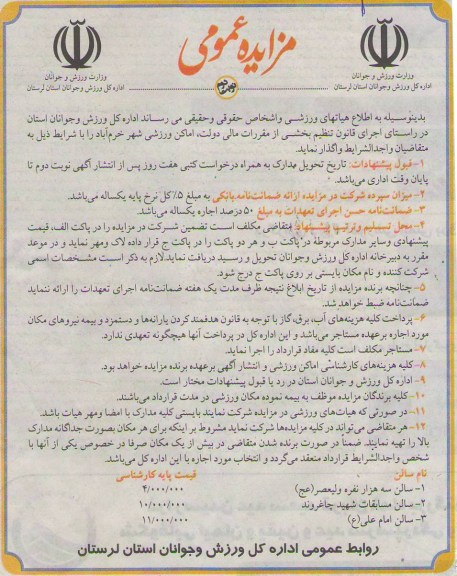 مزایده عمومی
نوبت دوم
وزارت ورزش و جوانان
اداره کل ورزش وجوانان استان لرستان
وزارت ورزش و جوانان
اداره کل ورزش وجوانان استان لرستان
بدینوسیله به اطلاع هیاتهای ورزشی واشخاص حقوقی وحقیقی می رساند اداره کل ورزش وجوانان استان
در راستای اجرای قانون تنظیم بخشی از مقررات مالی دولت، اماکن ورزشی شهر خرم‌آباد را با شرایط ذیل به
متقاضیان واجدالشرایط واگذار نماید.
۱-قبول پیشنهادات: تاریخ تحویل مدارک به همراه درخواست کتبی هفت روز پس از انتشار آگهی نوبت دوم تا
پایان وقت اداری می‌باشد.
۲-میزان سپرده شرکت در مزایده ارائه ضمانت‌نامه بانکی به مبلغ ۵٪ کل نرخ پایه یکساله می‌باشد.
۳- ضمانت‌نامه حسن اجرای تعهدات به مبلغ ۵۰ درصد اجاره یکساله می‌باشد.
۴- محل تسلیم وترتیب پیشنهاد: متقاضی مکلف است تضمین شرکت در مزایده را در پاکت الف، قیمت
پیشنهادی وسایر مدارک مربوطه در پاکت ب و هر دو پاکت را در پاکت ج قرار داده لاک ومهر نماید و در موعد
مقرر به دبیرخانه اداره کل ورزش وجوانان تحویل و رسید دریافت نماید.لازم به ذکر است مشخصات اسمی
شرکت کننده و نام مکان بایستی بر روی پاکت ج درج شود.
۵- چنانچه برنده مزایده از تاریخ ابلاغ نتیجه ظرف مدت یک هفته ضمانت‌نامه اجرای تعهدات را ارائه ننماید
ضمانت‌نامه ضبط خواهد شد.
۶- پرداخت کلیه هزینه‌های آب، برق، گاز با توجه به قانون هدفمند کردن یارانه‌ها و دستمزد و بیمه نیروهای مکان
مورد اجاره برعهده مستاجر می‌باشد و این اداره کل در پرداخت آنها هیچگونه تعهدی ندارد.
۷- مستاجر مکلف است کلیه مفاد قرارداد را اجرا نماید.
۸-کلیه هزینه‌های کارشناسی اماکن ورزشی و انتشار آگهی برعهده برنده مزایده خواهد بود.
۹- اداره کل ورزش و جوانان استان در رد یا قبول پیشنهادات مختار است.
۱۰- کلیه برندگان مزایده موظف به بیمه نموده مکان ورزشی در مدت قرارداد می‌باشند.
۱۱- در صورتی که هیات‌های ورزشی در مزایده شرکت نمایند بایستی کلیه مدارک با امضا ومهر هیات باشد.
۱۲- هر متقاضی می‌تواند در کلیه مزایده‌ها شرکت نماید مشروط بر اینکه برای هر مکان بصورت جداگانه مدارک
بالا را تهیه نمایند. ضمناً در صورت برنده شدن متقاضی در بیش از یک مکان صرفا در خصوص یکی از آنها با
شخص واجدالشرایط قرارداد منعقد می‌گردد و انتخاب مورد اجاره با این اداره کل می‌باشد.
نام سالن قیمت پایه کارشناسی
۱- سالن سه هزار نفره ولیعصر(عج) ۴/۰۰۰/۰۰۰
۲- سالن مسابقات شهید چاغروند ۱۰/۰۰۰/۰۰۰
۳- سالن امام علی(ع) ۱۱/۰۰۰/۰۰۰
روابط عمومی اداره کل ورزش وجوانان استان لرستان